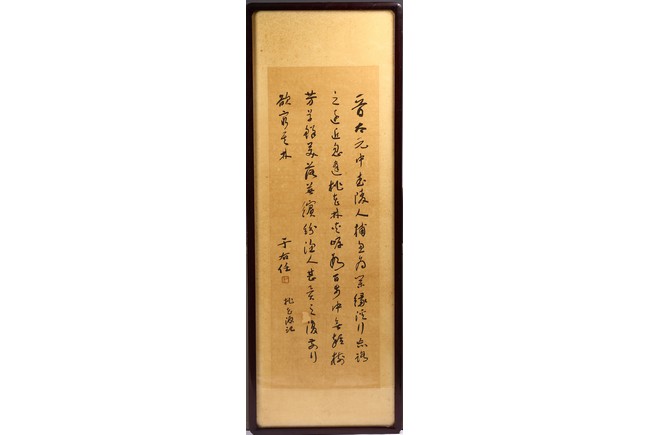 晉太元中武陵人捕魚為業緣溪行忘路
之遠近忽逢桃花林夾岸數百步中無雜樹
芳草鮮美落英繽紛漁人甚異之復前行
欲窮其林
于右任
桃花源記